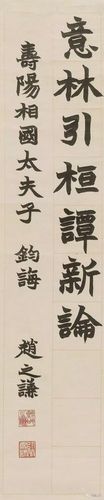 意林引桓譚新論
壽陽相國太夫子 鈞誨
趙之謙